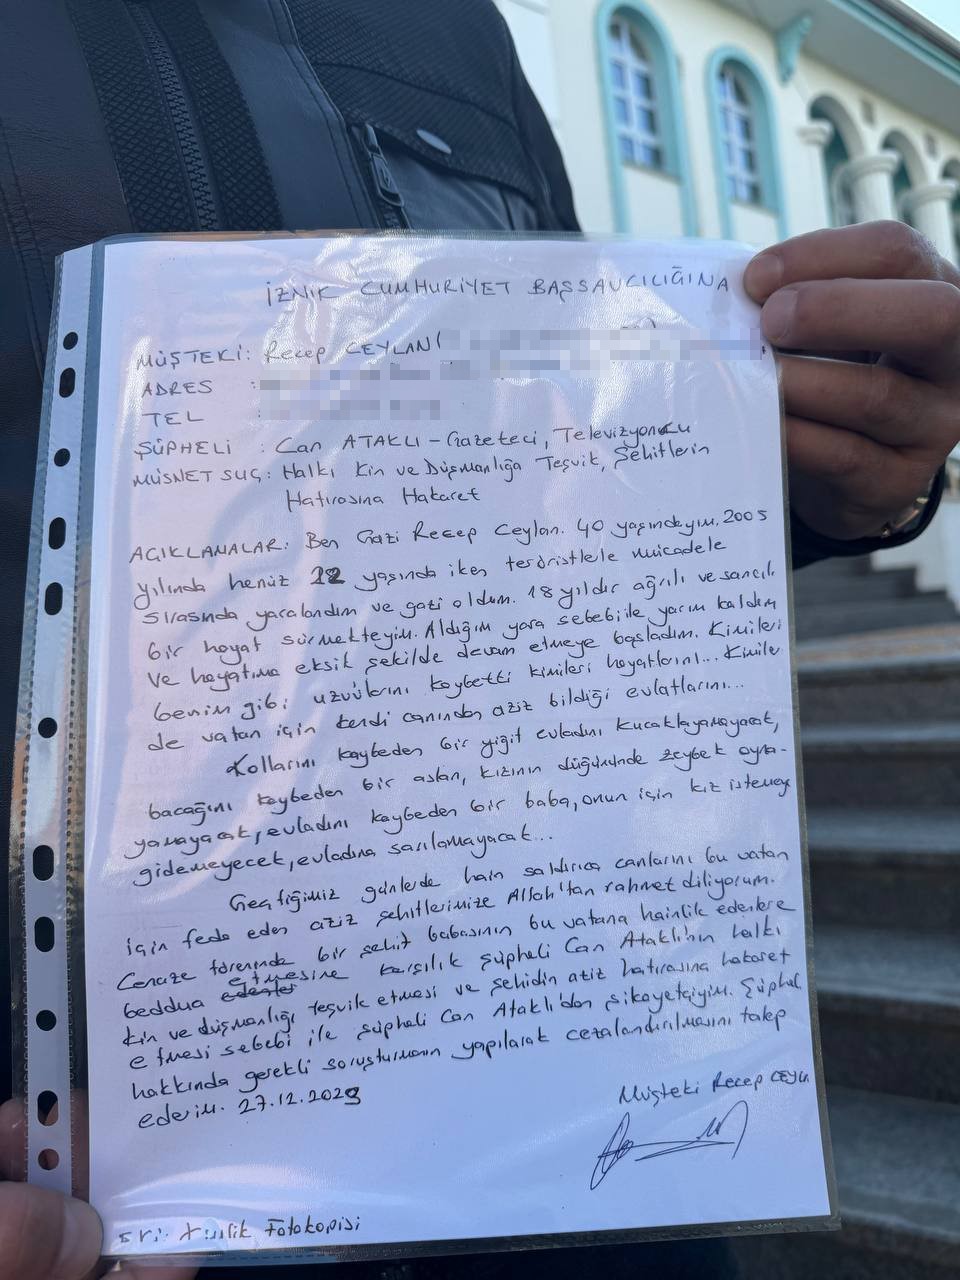 İZNİK CUMHURİYET BAŞSAVCILIĞINA
MÜŞTEKİ: Recep CEYLAN(
ADRES :
TEL :
ŞÜPHELİ : Can ATAKLI-Gazeteci, Televizyoncu
MÜSNET SUÇ: Halkı Kin ve Düşmanlığa Teşvik, Şehitlerin
Hatırasına Hakaret
AÇIKLAMALAR: Ben Gazi Recep Ceylan. 40 yaşındayım. 2005
yılında henüz 22 yaşında iken teröristlerle mücadele
sırasında yaralandım ve gazi oldum. 18 yıldır ağrılı ve sancılı
bir hayat sürmekteyim. Aldığım yara sebebi ile yarım kaldım
ve hayatıma eksik şekilde devam etmeye başladım. Kimileri
benim gibi uzuvlarını kaybetti kimileri hayatlarını... Kimileri
de vatan için kendi canından aziz bildiği evlatlarını...
Kollarını kaybeden bir yiğit evladını kucaklayamayacak,
bacağını kaybeden bir aslan, kızının düğününde zeybek oyna-
yamayacak, evladını kaybeden bir baba, onun için kız istemeye
gidemeyecek, evladına sarılamayacak...
Geçtiğimiz günlerde hain saldırıca canlarını bu vatan
için feda eden aziz şehitlerimize Allah'tan rahmet diliyorum.
Cenaze töreninde bir şehit babasının bu vatana hainlik edenlere
beddua edenler etmesine karşılık şüpheli Can Ataklı'nın halkı
kin ve düşmanlığı teşvik etmesi ve şehidin aziz hatırasına hakaret
etmesi sebebi ile şüpheli Can Ataklı'dan şikayetçiyim. Şüpheli
hakkında gerekli soruşturmanın yapılarak cezalandırılmasını talep
ederim. 27.12.2023
Müşteki Recep CEYLAN
Fotokopisi